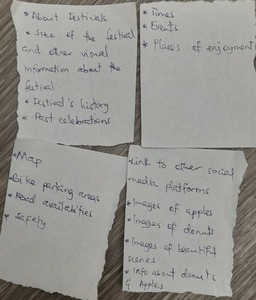 * About festivals
* Size of the festival
and other visual
information about the
festival.
* Festival's history
* Past celebrations
* Times
* Events
* Places of enjoyment
* Map
* Bike parking areas
* Road availabilities
* Safety
* Link to other social
media platforms
* Images of apples
* Images of donuts
* Images of beautiful
scenes.
* Info about donuts
& Apples